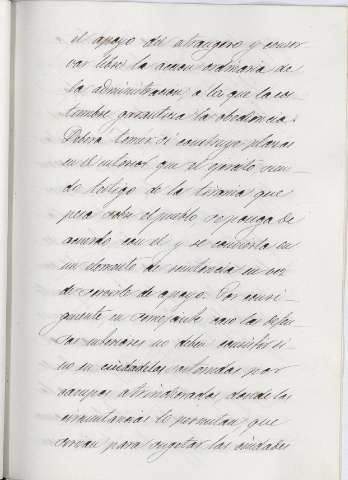 el apoyo del estrangero y conser-
var libre la accion ordinaria de
la administracion, a la que la cos-
tumbre garantiza la obediencia.
Deberá temer si construye plazas
en el interior que el soldado, sien-
do testigo de la tirania que
pesa sobre el pueblo, se ponga de
acuerdo con el y se convierta en
un elemento de resistencia en vez
de servirle de apoyo. Por consi-
guiente en semejante caso las
interiores no deben consistir si-
no en ciudadelas, estendidas por
campos atrincherados donde las
circunstancias lo permitan que
sirvan para sugetar las ciudades